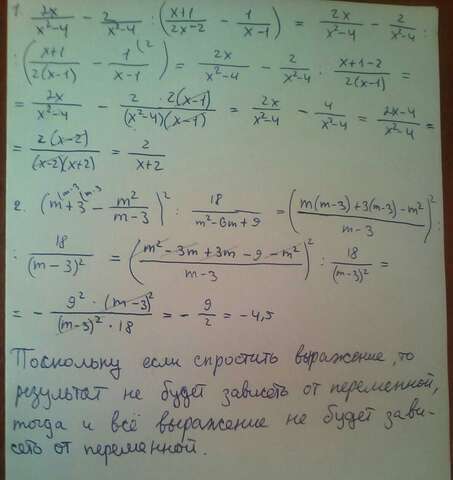 1. 2x/(x²-4) - 2/(x²-4) : ((x+1)/(2x-2) - 1/(x-1)) = 2x/(x²-4) - 2/(x²-4) :
: ((x+1)/(2(x-1)) - 1/(x-1) (2) = 2x/(x²-4) - 2/(x²-4) : (x+1-2)/(2(x-1)) =
= 2x/(x²-4) - 2·2(x-1)/((x²-4)(x-1)) = 2x/(x²-4) - 4/(x²-4) = (2x-4)/(x²-4) =
= 2(x-2)/((x-2)(x+2)) = 2/(x+2)
2. (m (m-3 + 3 (m-3 - m²/(m-3))² : 18/(m²-6m+9) = ((m(m-3)+3(m-3)-m²)/(m-3))² :
: 18/(m-3)² = ((m²-3m+3m-9-m²)/(m-3))² : 18/(m-3)² =
= - 9²·(m-3)²/((m-3)²·18) = - 9/2 = -4,5
Поскольку если спростить выражение, то
результат не будет зависеть от переменной,
тогда и всё выражение не будет зави-
сеть от переменной.